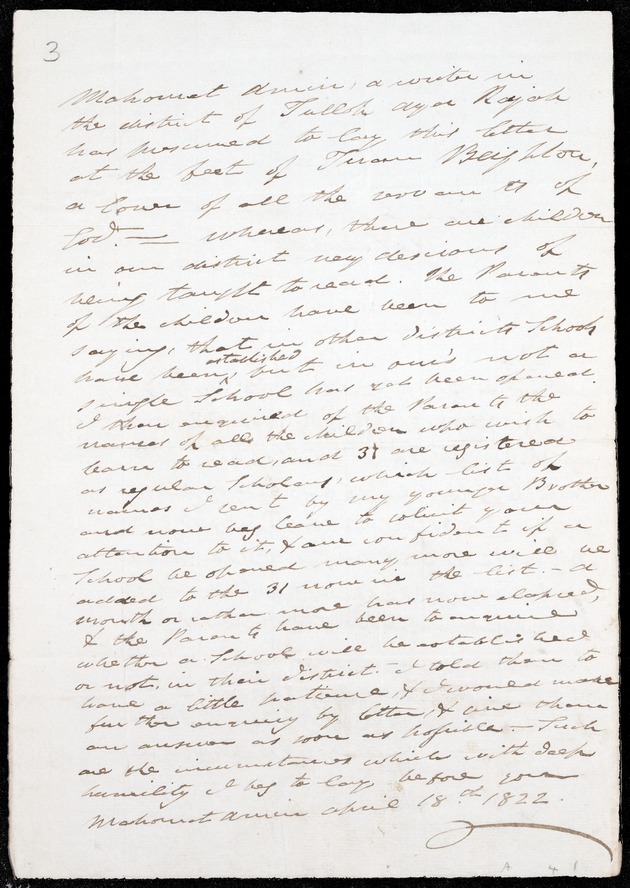 3
Mahomet Amin, a writer in
the district of Tulloh ayer Rajah
has presumed to lay this letter
at the feet of Tuan Beighton,
a lover of all the servants of
God. — whereas, there are children
in our district very desirous of
being taught to read. The Parents
of the children have been to me
saying, that in other districts Schools
have been established, but in our's not a
single School has yet been opened.
I then enquired of the Parents the
names of all the children who wish to
learn to read, and 31 are registered
as regular Scholars, which list of
names I sent by my younger Brother
and now beg leave to solicit your
attention to it, & am confident if a
School be opened many more will be
added to the 31 now in the list. – A
month or rather more has now elapsed,
& the Parents have been to enquire
whether a School will be established
or not, in their district. – I told them to
have a little patience, & I would make
further enquiry by letter, & give them
an answer as soon as possible – Such
are the circumstances which with deep
humility I beg to lay before you
Mahomet Amin April 18th 1822.
A 4 1